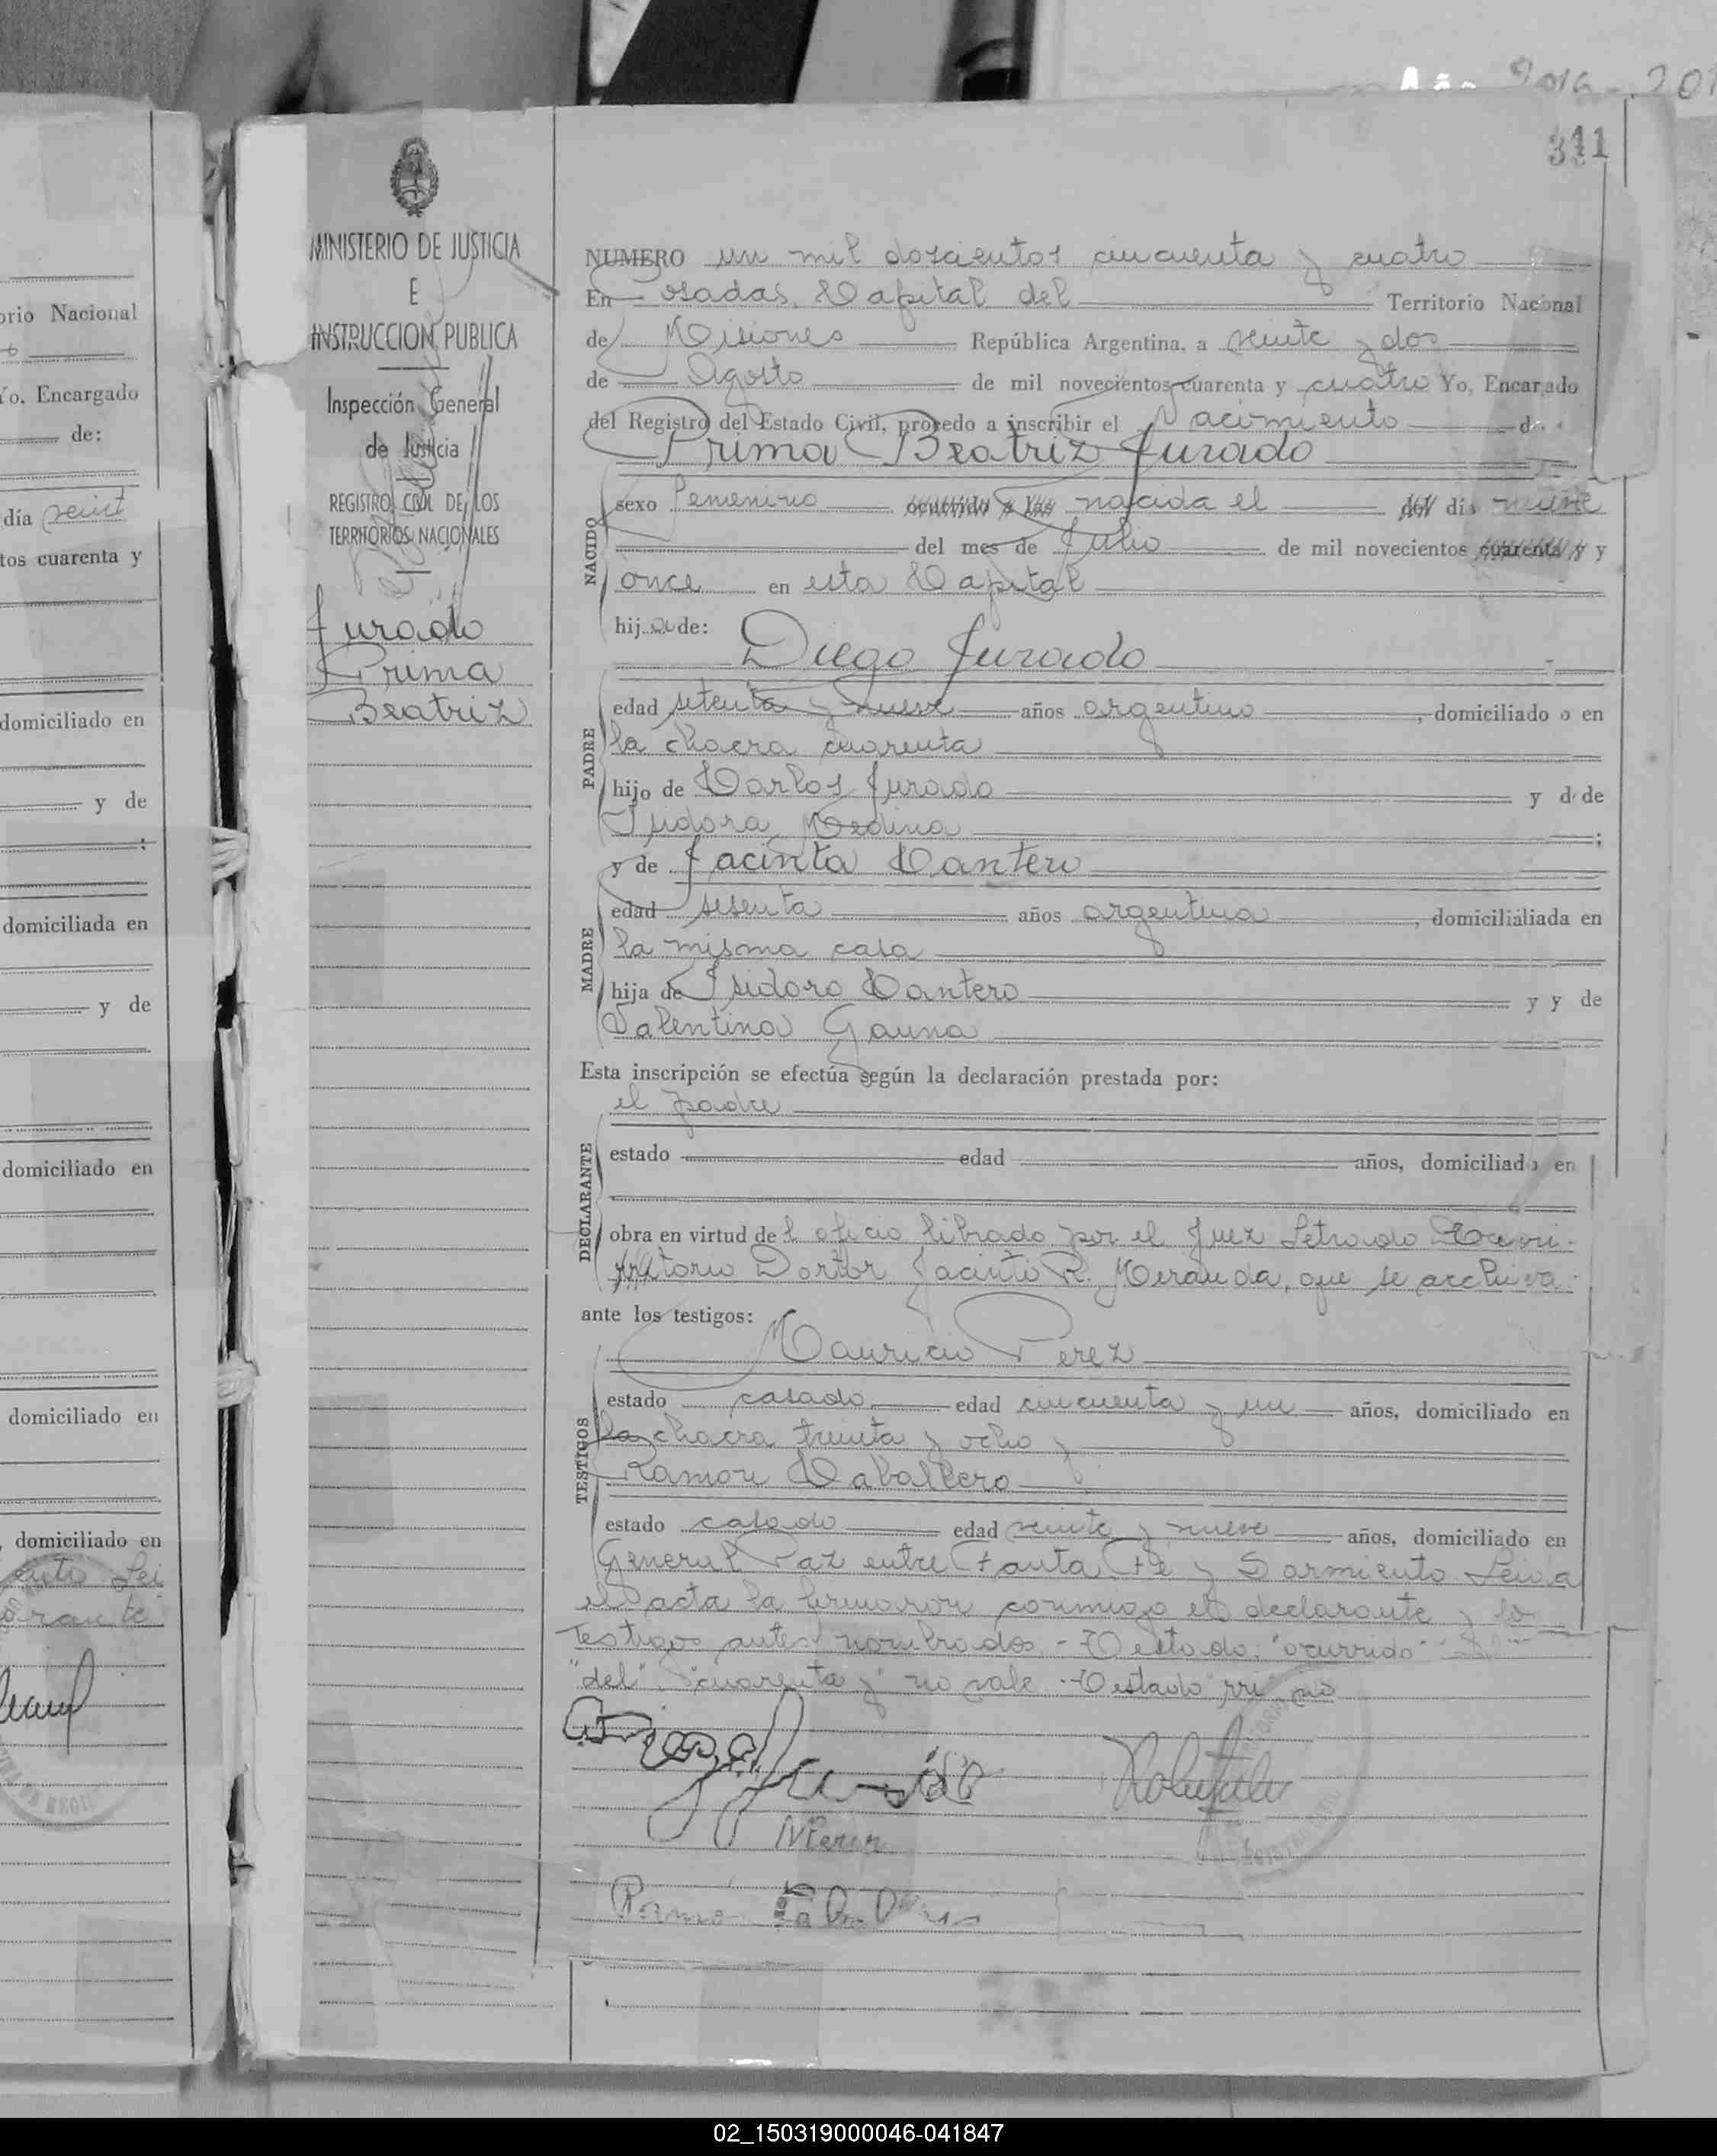 Año 2016-201
341
orio Nacional
Yo, Encargado
de:
día veint
tos cuarenta y
domiciliado en
y de
;
domiciliada en
y de
domiciliado en
domiciliado en
, domiciliado en
MINISTERIO DE JUSTICIA
E
INSTRUCCION PUBLICA
Inspección General
de Justicia
REGISTRO CIVIL DE LOS
TERRITORIOS NACIONALES
Jurado
Prima
Beatriz
NUMERO un mil doscientos cincuenta y cuatro
En Posadas, Capital del Territorio Nacional
de Misiones República Argentina, a veinte y dos
de Agosto de mil novecientos cuarenta y cuatro Yo, Encargado
del Registro del Estado Civil, procedo a inscribir el Nacimiento de
Prima Beatriz Jurado
NACIDO
sexo femenino ocurrido a las nacida el del día nueve
del mes de Julio de mil novecientos cuarenta y y
once en esta Capital
hija de:
Diego Jurado
PADRE
edad setenta y nueve años argentino, domiciliado o en
la chacra cuarenta
hijo de Carlos Jurado y d de
Isidora Medina ;
y de Jacinta Cantero
MADRE
edad sesenta años argentina, domicilialiada en
la misma casa
hija de Isidoro Cantero y y de
Valentina Gauna
Esta inscripción se efectúa según la declaración prestada por:
el padre
DECLARANTE
estado edad años, domiciliado en
obra en virtud del oficio librado por el Juez Letrado
Doctor Jacinto R. Miranda, que se archiva.
ante los testigos:
Mauricio Perez
TESTIGOS
estado casado edad cincuenta y un años, domiciliado en
la chacra treinta y ocho y
Ramon Caballero
estado casado edad veinte y nueve años, domiciliado en
General Paz entre Santa Fé y Sarmiento Leida
el acta la firmaron conmigo el declarante y lo
testigos antes nombrados.- Testado: "ocurrido"
"del". "cuarenta y" no vale.- Testado "rri" no
Diego Jurado
MPerez
Ramón
02_150319000046-041847